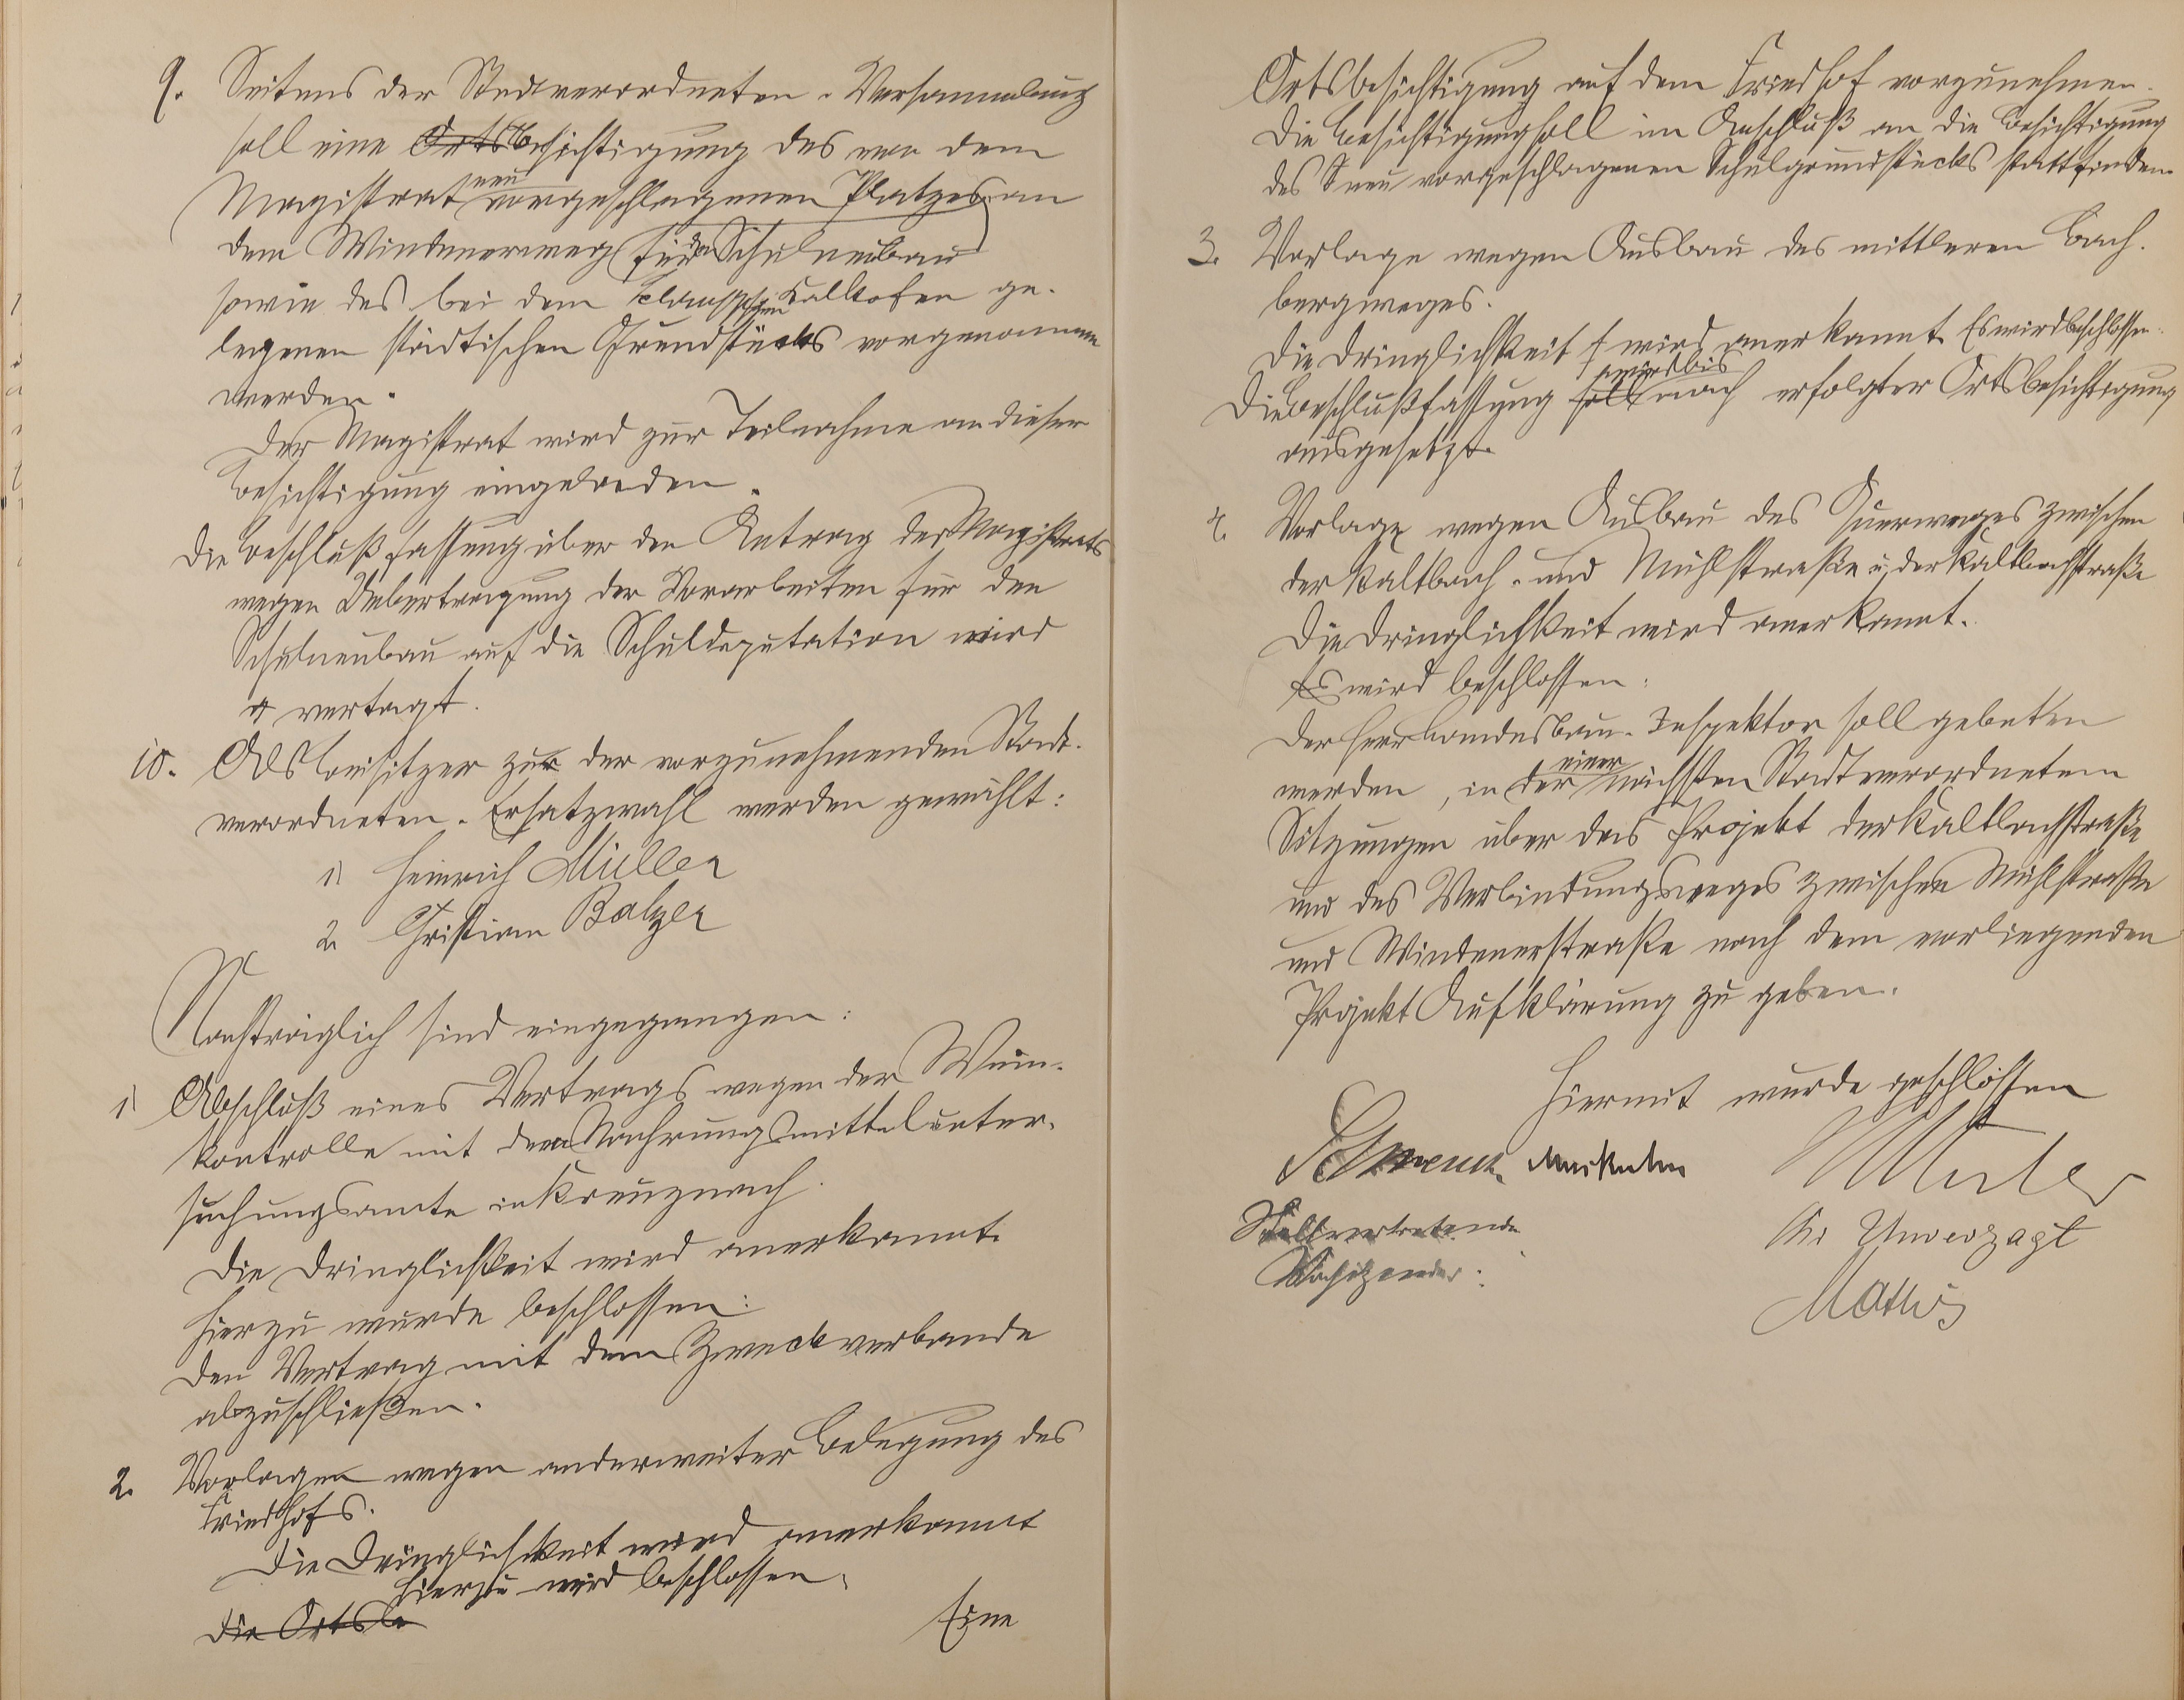 9. Seitens der Stadtverordneten-Versammlung
soll eine Ortsbesichtigung des von dem
Magistrat neu vorgeschlagenen Platzes an
dem Windenerweg für den Schulneubau
sowie des bei dem Kalkofen ge-
legenen städtischen Grundstücks vorgenommen
werden.
Der Magistrat wird zur Teilnahme an dieser
Besichtigung eingeladen.
Die Beschlußfassung über den Antrag des Magistrats
wegen Uebertragung der Vorarbeiten für den
Schulneubau auf die Schuldeputation wird
vertagt.
10. Als Beisitzer zur der vorzunehmenden Stadt-
verordneten-Ersatzwahl werden gewählt:
1) Heinrich Müller
2. Christian Balzer
Nachträglich sind eingegangen:
1) Abschluß eines Vertrags wegen der Wein-
kontrolle mit dem Nahrungsmittelunter-
suchungsamte in Kreuznach.
Die Dringlichkeit wird anerkannt.
Hierzu wurde beschlossen:
den Vertrag mit dem Zweckverbande
abzuschließen.
2. Vorlagen wegen anderweiter Belegung des
Friedhofs.
Die Dringlichkeit wird anerkannt
Hierzu wird beschlossen:
Die Ortsbe
Eine
Ortsbesichtigung auf dem Friedhof vorzunehmen.
Die Besichtigung soll im Anschluß an die Besichtigung
des neu vorgeschlagenen Schulgrundstücks stattfinden.
3. Vorlage wegen Ausbau des mittleren Bach-
bergweges.
Die Dringlichkeit wird anerkannt. Es wird beschlossen:
Die Beschlußfassung soll wird bis nach erfolgter Ortsbesichtigung
ausgesetzt.
4. Vorlage wegen Ausbau des Querweges zwischen
der Kaltbach- und Mühlstraße u. der Kaltbachstraße
Die Dringlichkeit wird anerkannt.
Es wird beschlossen:
Der Herr Landesbau-Inspektor soll gebeten
werden, in der einer nächsten Stadtverordneten
Sitzungen über das Projekt der Kaltbachstraße
und des Verbindungsweges zwischen Mühlstraße
und Windenerstraße nach dem vorliegenden
Projekt Aufklärung zu geben.
Hiermit wurde geschlossen
Stellvertretender
Vorsitzender:
Chr Unverzagt
Mathis